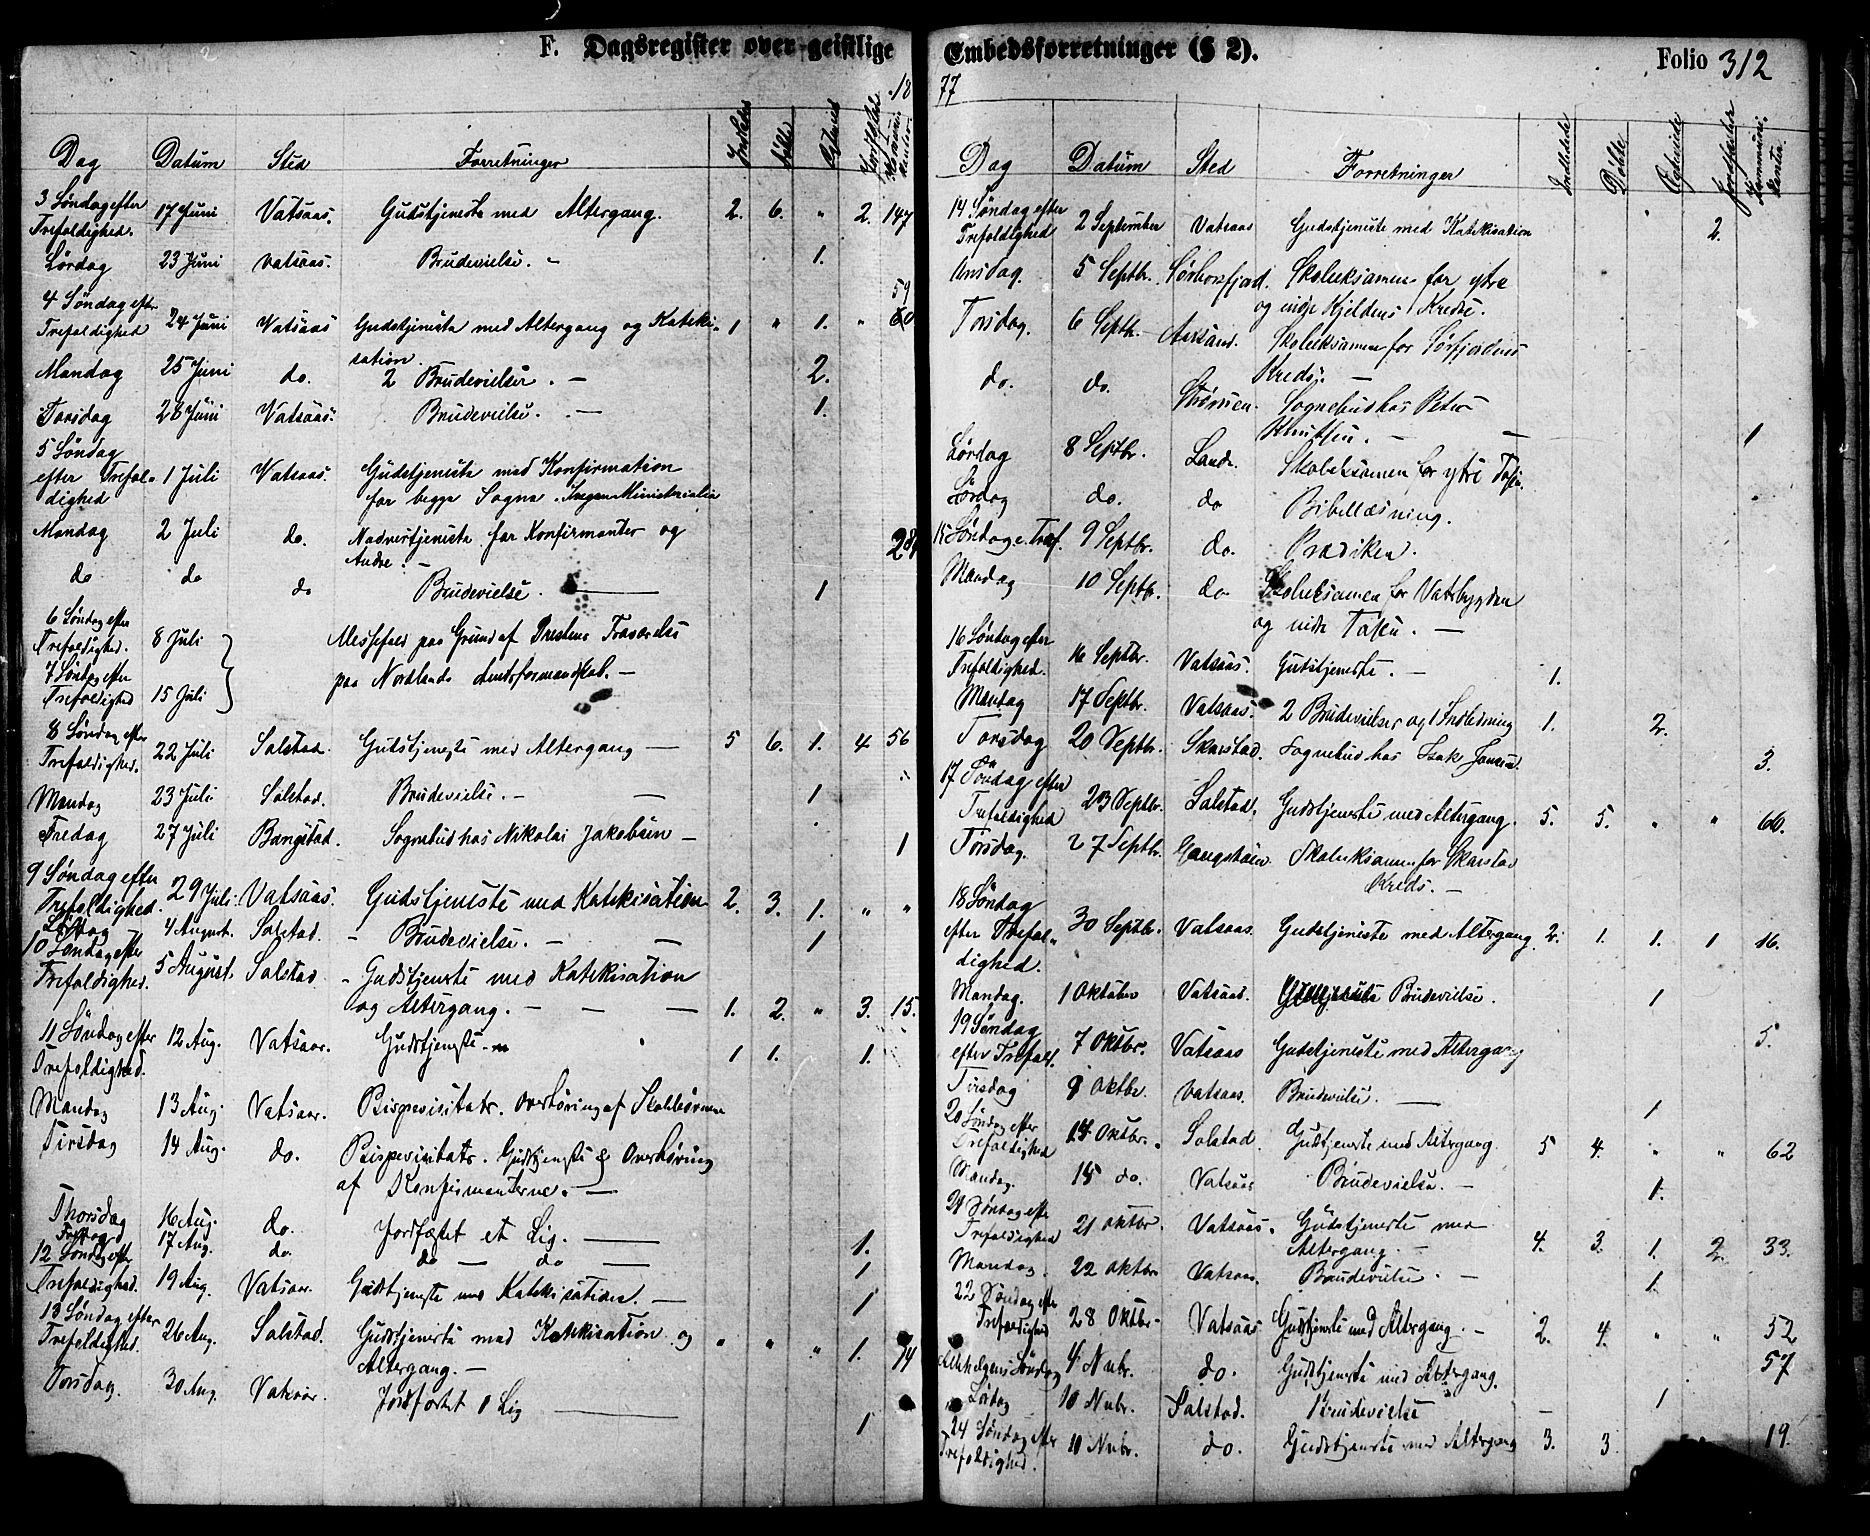 F. Dagsregister over geistlige
18
Dag Datum Sted Forretninger Døbte
3 Søndag efter
Trefoldighed. 17 Juni Vatsaas. Gudstjeneste med Altergang. 2. 6. " 2. 147
Lørdag 23 Juni Vatsaas. Brudevielse. — 1.
4 Søndag efter 59
Trefoldighed 24 Juni Vatsaas Gudstjeneste med Altergang og Kateki- 1 " 1. "
sation.
Mandag 25 Juni do. 2 Brudevielser. — 2.
Torsdag 28 Juni Vatsaas. Brudevielse. — 1.
5 Søndag
efter Trefol- 1 Juli Vatsaas. Gudstjeneste med Konfirmation
dighed for begge Sogne. Ingen Ministerialia
Mandag 2 Juli do. Nadvertjeneste for Konfirmanter og
Andre. —
do do do Brudevielse. — 1
6 Søndag efter
Trefoldighed. 8 Juli Messefald paa Grund af Prestens Fraværelse
7 Søndag efter
Trefoldighed 15 Juli paa Nordlands Amtsformandskab. —
8 Søndag efter
Trefoldighed. 22 Juli Salstad. Gudstjeneste med Altergang — 5 6. 1. 4 56
Mandag 23 Juli Salstad. Brudevielse. — — 1
Fredag 27 Juli Bangstad. Sognebud hos Nikolai Jakobsen — 1
9 Søndag efter
Trefoldighed. 29 Juli. Vatsaas. Gudstjeneste med Katekisation 2. 3. 1. " "
Lørdag 4 August. Salstad. - Brudevielse. — — 1
10 Søndag efter
Trefoldighed. 5 August. Salstad - Gudstjeneste med Katekisation
og Altergang. — — — 1. 2. " 3. 15.
11 Søndag efter
Trefoldighed. 12 Aug. Vatsaas. Gudstjeneste. 1 1. 1.
Mandag 13 Aug. Vatsaas. Bispevisitats. Overhøring af Skolebørnene
Tirsdag 14 Aug. do. Bispevisitats. Gudstjeneste & Overhøring
af Konfirmanterne. —
Thorsdag 16 Aug. do. Jordfæstet et Lig. — 1.
Fredag 17 Aug. do. do — do — 1
12 Søndag efter
Trefoldighed. 19 Aug. Vatsaas. Gudstjeneste med Katekisation. — 1
13 Søndag efter
Trefoldighed. 26 Aug. Salstad. Gudstjeneste med Katekisation og " " " 1. 14
Altergang. —
Torsdag. 30 Aug. Vatsaas. Jordfæstet 1 Lig — 1
Embedsforretninger (§ 2).
Folio 312
77
Dag Datum Sted Forretninger Indledede Døbte Egteviede Jordfæstede Kommunikanter.
14 Søndag efter
Trefoldighed 2 September Vatsaas Gudstjeneste med Katekisation 2.
Onsdag. 5 Septbr. Sørhorsfjord. Skoleeksamen for ytre
og indre Kjeldens Kredse.
Torsdag. 6 Septbr. Aarsand. Skoleeksamen for Sørfjordens
Kreds. —
do. do. Strømen. Sognebud hos Peter
Knutsen. — — 1
Lørdag 8 Septbr. Lande. Skoleeksamen for ytre Tosen.
Lørdag do. do Bibellæsning.
15 Søndag e. Tref. 9 Septbr. do. Prædiken.
Mandag 10 Septbr. do. Skoleeksamen for Vatsbygden
og indre Tosen. —
16 Søndag efter
Trefoldighed. 16 Septbr. Vatsaas. Gudstjeneste. — 1.
Mandag 17 Septbr. Vatsaas. 2 Brudevielser og 1 Indledning 1. 2.
Torsdag 20 Septbr. Skarstad. Sognebud hos Isak Jonsen. 3.
17 Søndag efter
Trefoldighed 23 Septbr. Salstad. Gudstjeneste med Altergang. 5. 5. " " 60.
Torsdag. 27 Septbr. Skoleeksamen for Skarstad
Kreds. —
18 Søndag
efter Trefol- 30 Septbr. Vatsaas. Gudstjeneste med Altergang 2. 1. 1. 1 16.
dighed.
Mandag. 1 Oktober Vatsaas. Brudevielse. 1
19 Søndag
efter Trefold. 7 Oktbr. Vatsaas Gudstjeneste med Altergang 5.
Tirsdag 9 Oktbr. Vatsaas. Brudevielse. — 1.
20 Søndag efter
Trefoldighed 14 Oktbr. Salstad. Gudstjeneste med Altergang. 5 4. " " 62
Mandag. 15 do. Vatsaas Brudevielse. — 1.
21 Søndag efter
Trefoldighed 21 Oktbr. Vatsaas. Gudstjeneste med
Altergang. — 4. 3. 1. 2. 33.
Mandag. 22 Oktbr Vatsaas. Brudevielse. — 1.
22 Søndag efter
Trefoldighed 28 Oktbr. Vatsaas Gudstjeneste med Altergang. — 2. 4. " " 52
Allehelgens Søndag 4 Nvbr. do. Gudstjeneste med Altergang. 57
Lørdag 10 Nvbr. Salstad. Brudevielse — 1
24 Søndag efter
Trefoldighed. 11 Nvbr. do. Gudstjeneste med Altergang 3. 3 19.